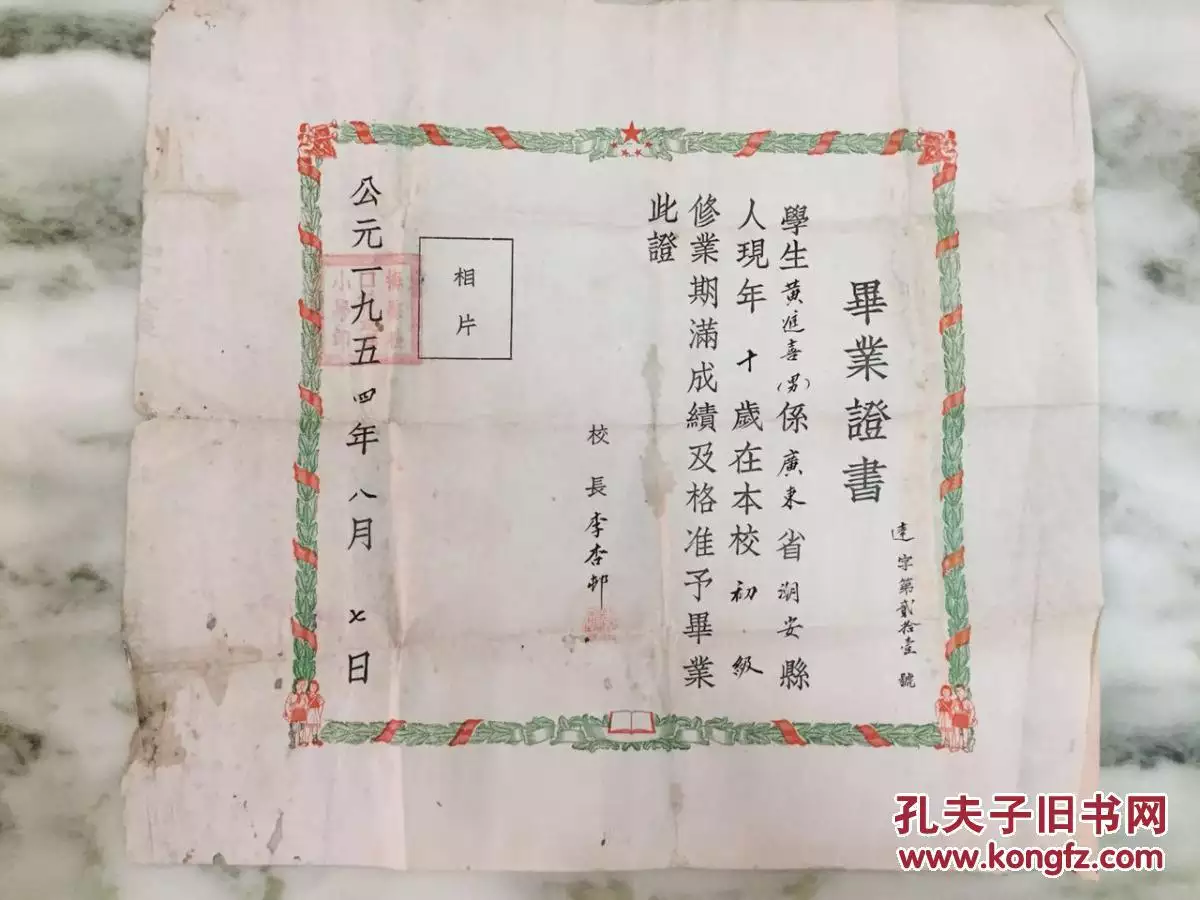 畢業證書
達字第貳拾壹號
學生黃進喜(男)係廣東省潮安縣
人現年十歲在本校初級
修業期滿成績及格准予畢業
此證
校長李杏邨
相片
公元一九五四年八月七日
孔夫子旧书网
www.kongfz.com